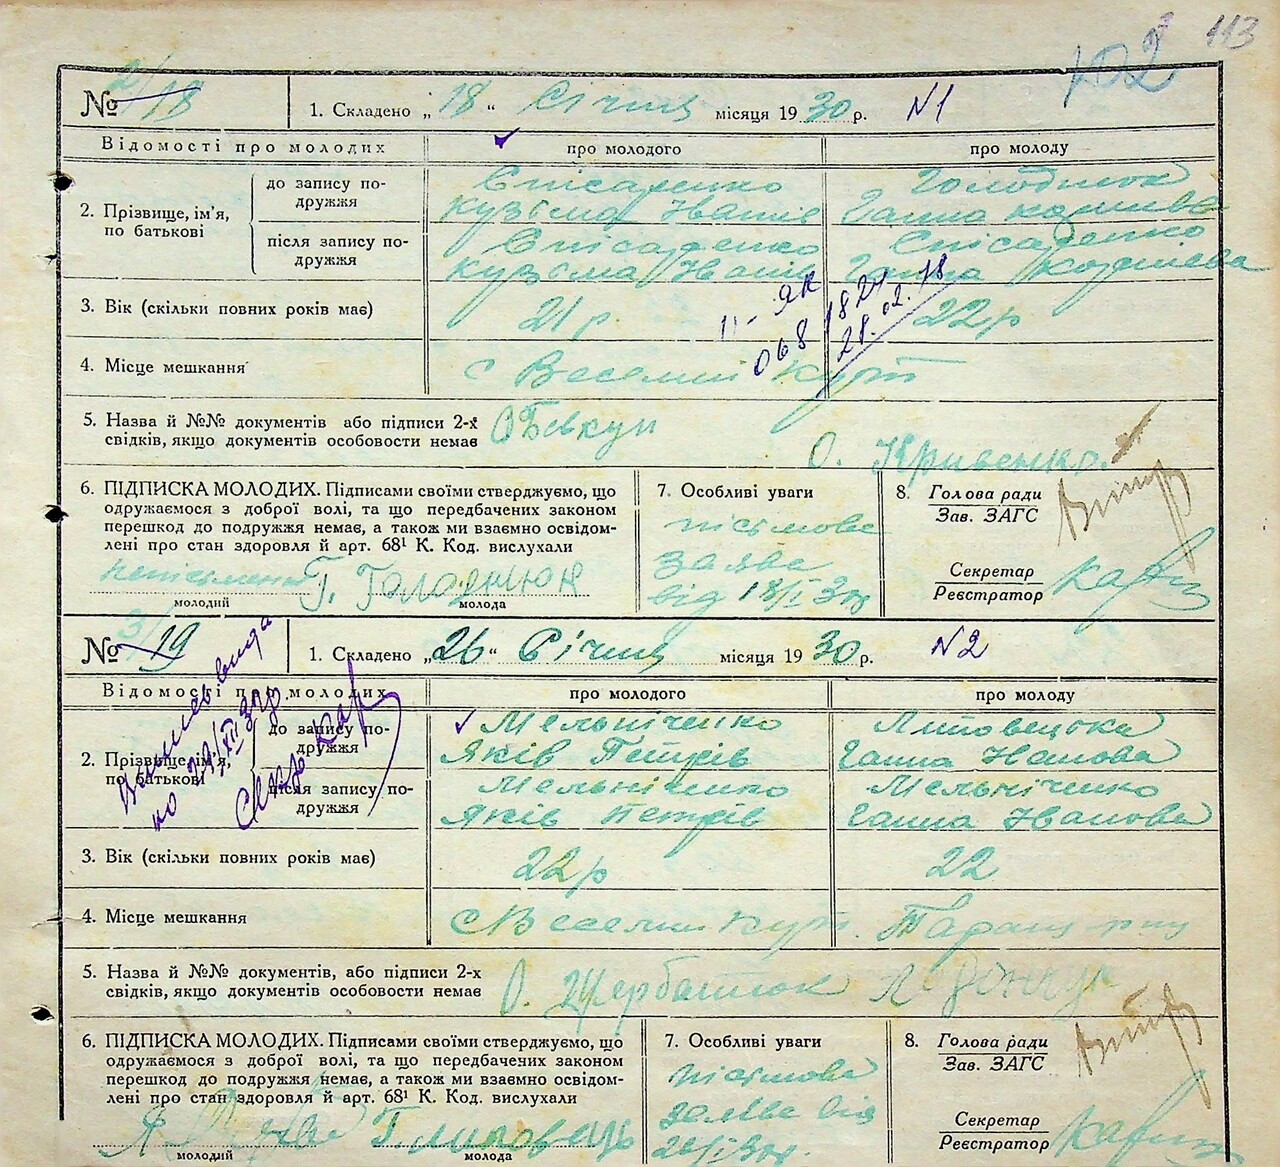 113
102
№ 2/18 1. Складено „18“ Січня місяця 1930 р. N1
Відомості про молодих про молодого про молоду
до запису по-
дружжя
Спісаренко
Кузьма Іванів
Голоднюк
Ганна
2. Прізвище, ім'я,
по батькові
після запису по-
дружжя
Спісаренко
Кузьма Іванів
Спісаренко
Ганна
3. Вік (скільки повних років має) 21 р. 22 р
II - ЯК
068
28.02.78
4. Місце мешкання с Веселий Кут
5. Назва й №№ документів або підписи 2-х
свідків, якщо документів особовости немає
О Бевкун
О. Кривенко
6. ПІДПИСКА МОЛОДИХ. Підписами своїми стверджуємо, що
одружаємося з доброї волі, та що передбачених законом
перешкод до подружжя немає, а також ми взаємно освідом-
лені про стан здоров'я й арт. 68¹ К. Код. вислухали
Г. Голоднюк
молодий молода
7. Особливі уваги
пісьмова
заява
від 18/I 30р
8. Голова ради
Зав. ЗАГС
Секретар
Реєстратор
№ 3/19 1. Складено „26“ Січня місяця 1930 р. N2
Відомості про молодих про молодого про молоду
до запису по-
дружжя
Мельніченко
Яків Петрів
Липовецька
Ганна Іванова
2. Прізвище, ім'я,
по батькові
після запису по-
дружжя
Мельніченко
Яків Петрів
Мельніченко
Ганна Іванова
3. Вік (скільки повних років має) 22 р 22
4. Місце мешкання с Веселий Кут.
5. Назва й №№ документів, або підписи 2-х
свідків, якщо документів особовости немає
О. Щербатюк
6. ПІДПИСКА МОЛОДИХ. Підписами своїми стверджуємо, що
одружаємося з доброї волі, та що передбачених законом
перешкод до подружжя немає, а також ми взаємно освідом-
лені про стан здоров'я й арт. 68¹ К. Код. вислухали
молодий молода
7. Особливі уваги
пісьмова
заява від
26/I 30р
8. Голова ради
Зав. ЗАГС
Секретар
Реєстратор